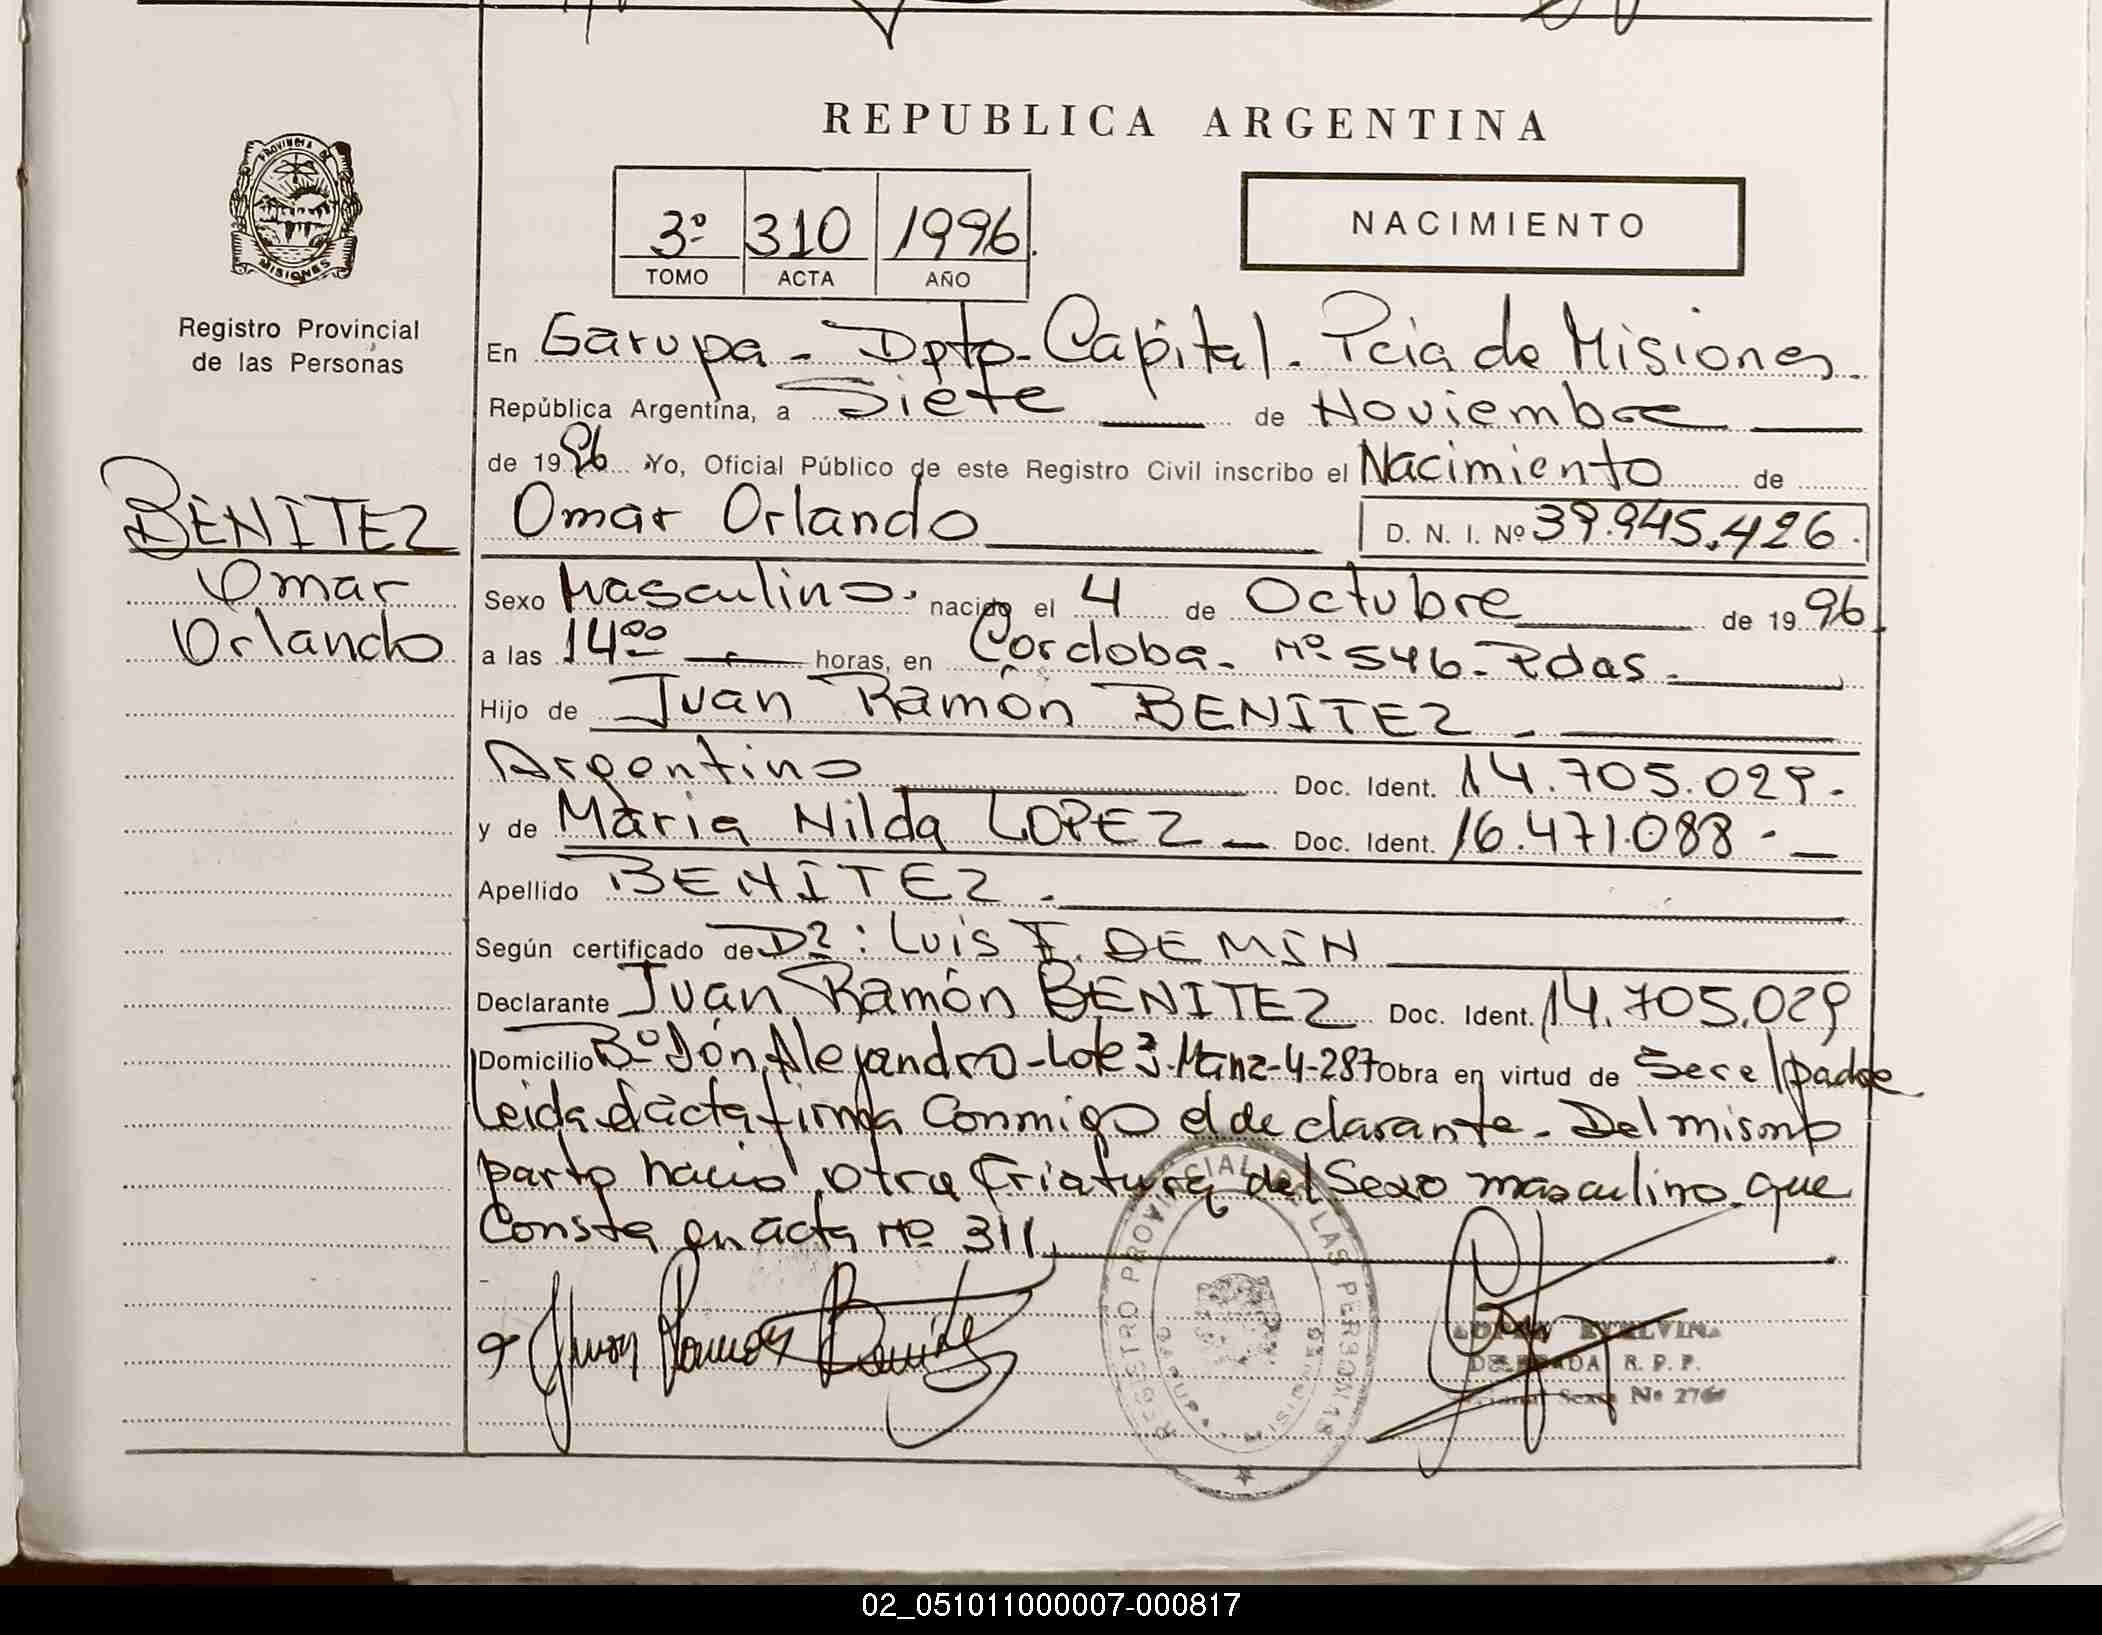 REPUBLICA ARGENTINA
PROVINCIA DE
MISIONES
Registro Provincial
de las Personas
3º 310 1996.
TOMO ACTA AÑO
NACIMIENTO
En Garupa - Dpto - Capital - Pcia de Misiones
República Argentina, a Siete de Noviembre
de 1996 Yo, Oficial Público de este Registro Civil inscribo el Nacimiento de
BENITEZ
Omar
Orlando
Omar Orlando D. N. I. Nº 39.945.426.
Sexo Masculino. nacido el 4 de Octubre de 1996
a las 14⁰⁰ horas, en Cordoba - Nº 546 - Pdas -
Hijo de Juan Ramón BENITEZ -
Argentino Doc. Ident. 14.705.029.-
y de Maria Nilda LOPEZ - Doc. Ident. 16.471.088 - -
Apellido BENITEZ -
Según certificado de : Luis I. DEMIN
Declarante Juan Ramón BENITEZ Doc. Ident. 14.705.029
Domicilio Bº Don Alejandro - Lote 3. Manz - 4 - 287 Obra en virtud de Ser el padre
Leida el acta firma Conmigo el declarante - Del mismo
parto nacio otra Criatura del Sexo masculino que
Consta en acta Nº 311
Juan Ramon Benitez
REGISTRO PROVINCIAL DE LAS PERSONAS
Garupa Misiones
ETELVINA
DELEGADA R. P. P.
Nº 276
02_051011000007-000817